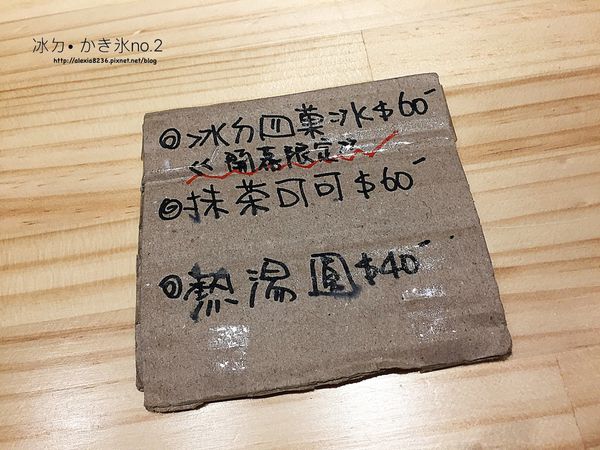 冰ㄉ• かき氷no.2
http://alexia8236.pixnet.net/blog
◎冰ㄉ四菓冰$60-
<<開幕限定>>
◎抹茶可可$60-
◎熱湯圓$40-